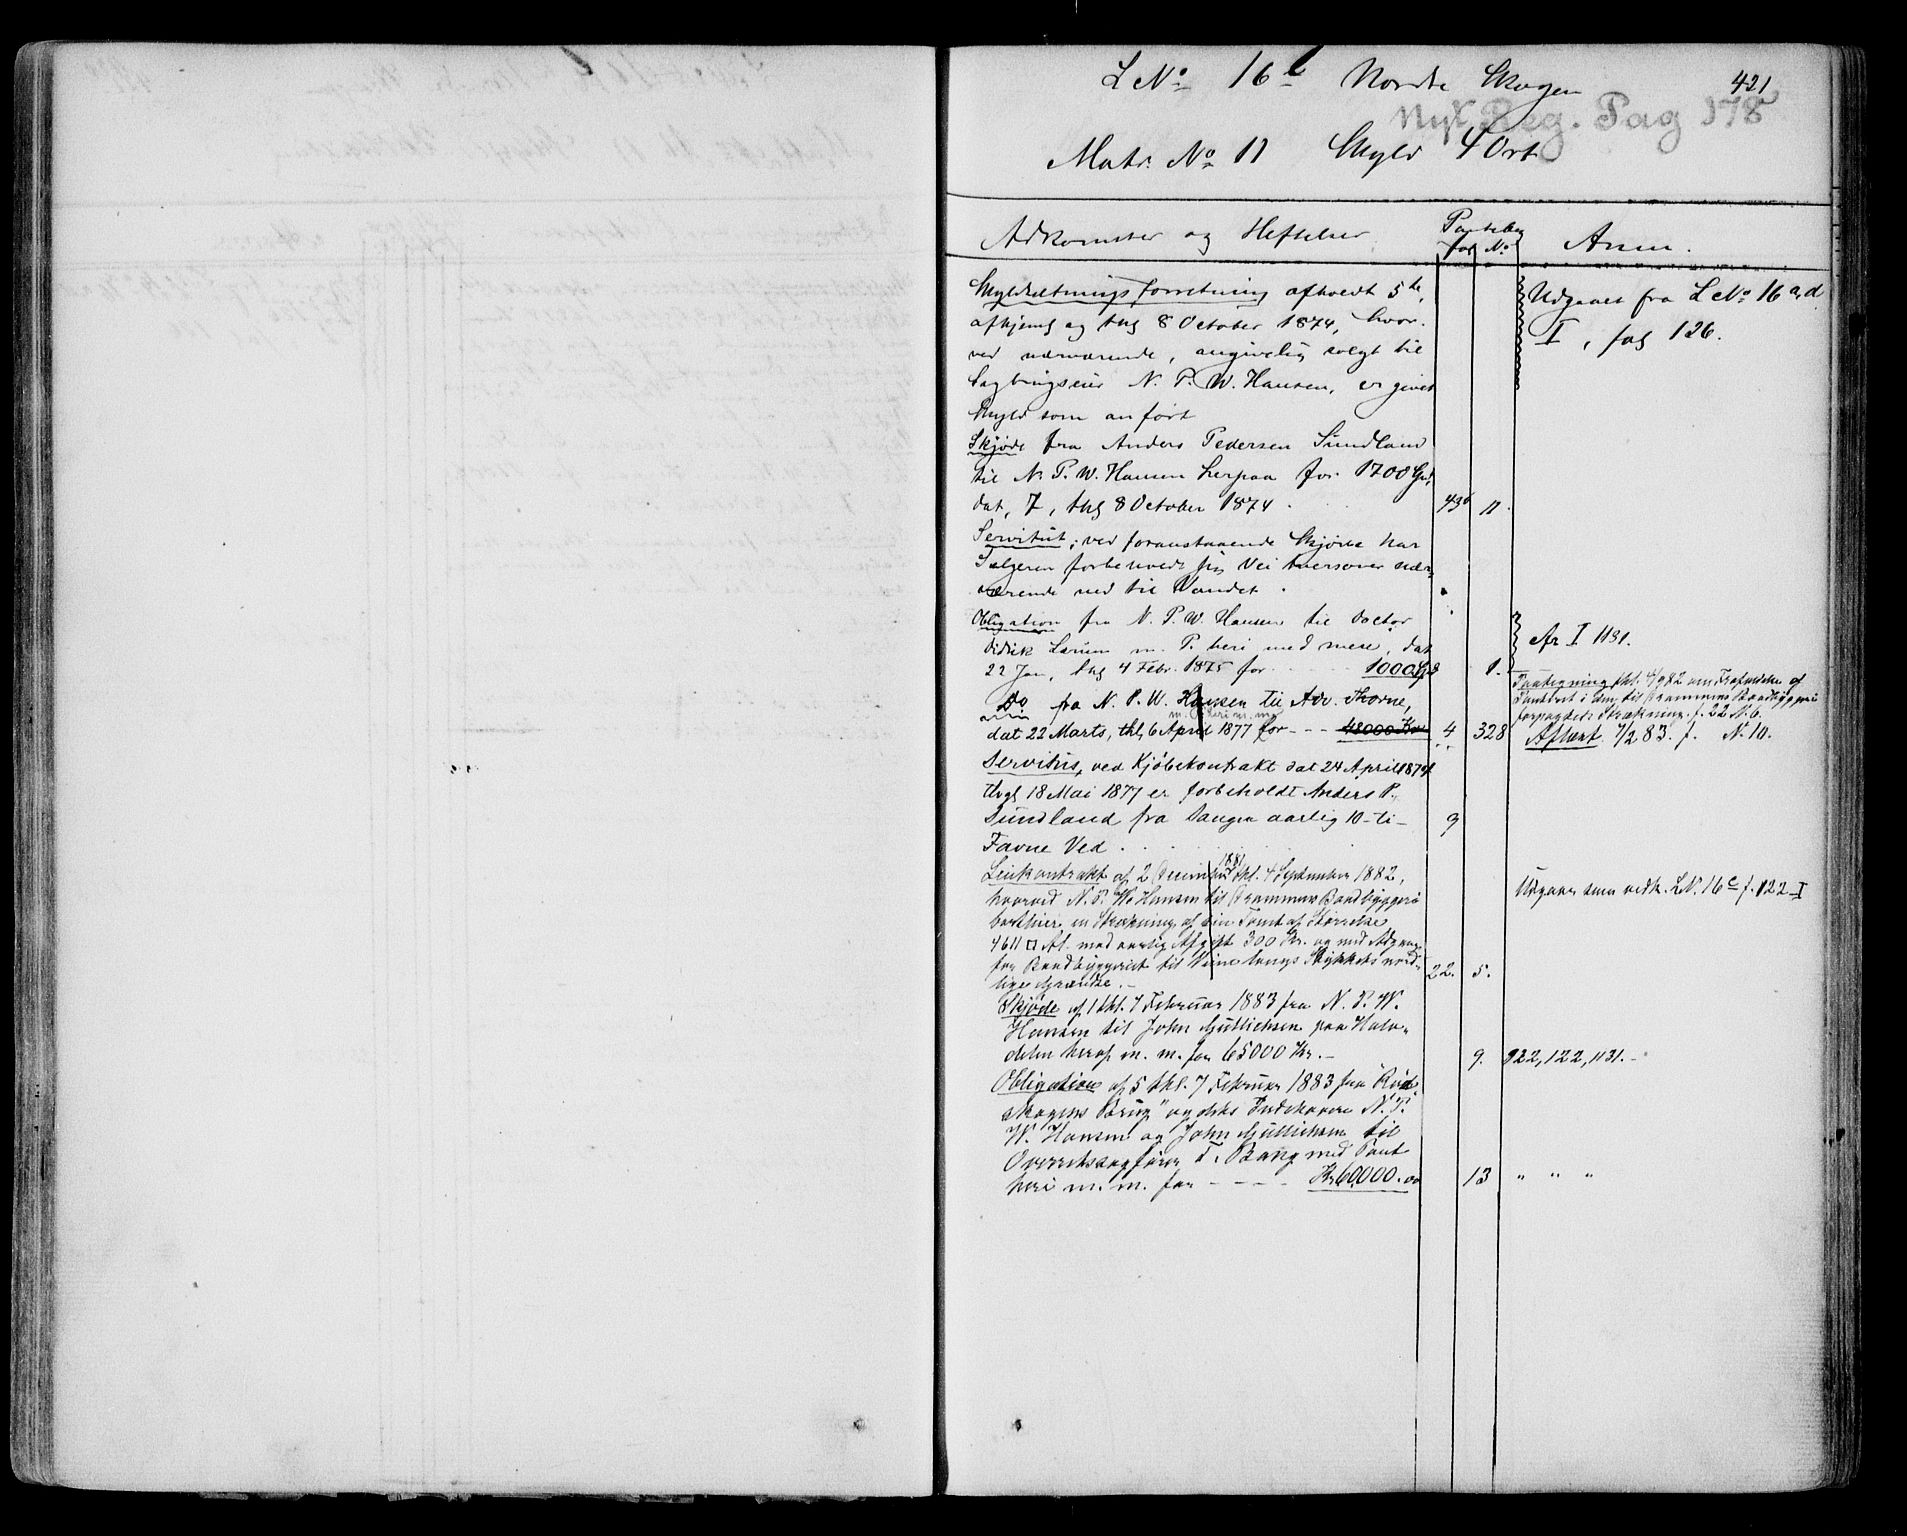 421
L No 16 l Nordre Skogen
Nyt Reg. Pag 178
Matr. No 11 Skyld 4 Ort
Adkomster og Heftelser Pantebog Anm.
fol No
Skyldsætningsforretning afholdt 5te,
afhjeml og thgl 8 October 1874, hvor-
ved nærværende, angivelig solgt til
Sagbrugseier N. P. W. Hansen, er givet
Skyld som anført
Udgaaet fra L No 16 a, d
I, fol 126.
Skjøde fra Anders Pedersen Sundland
til N. P. W. Hansen herpaa for 1700 Spd,
dat, 7, thgl 8 October 1874. 436 11.
Servitut; ved foranstaaende Skjøde har
Sælgeren forbeholdt sig Vei tversover nær-
værende ned til Vandet.
Obligation fra N. P. W. Hansen til Doctor
Didrik m. P. heri med mere, dat
22 Jan, thgl 4 Febr. 1875 for 1000 Spd 1.
Afr I 1131.
Do fra N. P. W. Hansen til Adv. Thorne,
m. P. heri m. m.
dat 22 Marts, thl, 6 April 1877 for - - - 48000 Kr 4 328
Paategning thl. 4/9 82 om Frafaldelse af
Panteret i den til Drammens Baadbyggeri
Strækning. f. 22 N. 6.
Aflæst 7/2 83. f. N. 10.
Servitus, ved Kjøbekontrakt dat 24 April 1874
thgl 18 Mai 1877 er forbeholdt Anders P.
Sundland fra Saugen aarlig 10-ti- 9
Favne Ved
Leiekontrakt af 2 December 1881 thl. 4 September 1882,
hvorved N. P. W. Hansen til Drammens Baadbyggeri
bortleier en Strækning af sin Tomt af Størrelse
4611 □ Al. mod aarlig Afgift 300 Kr. og med Adgang
for Baadbyggeriet til Veien langs Stykkets nord-
lige Grændse. - 22. 5.
Udgaar som vedk. L N. 16 c f. 122 I
Skjøde af 1 thl. 7 Februar 1883 fra N. P. W.
Hansen til John Gullichsen paa Halv-
delen heraf m. m. for 65000 Kr. - 9. 922, 122, 1131. -
Obligation af 5 thl. 7 Februar 1883 fra "Rød-
skogens Brug" og dets Indehavere N. P.
W. Hansen og John Gullichsen til
Overretssagfører T. Bang med Pant
heri m. m. for - - - - Kr 60,000.00 13 " " "